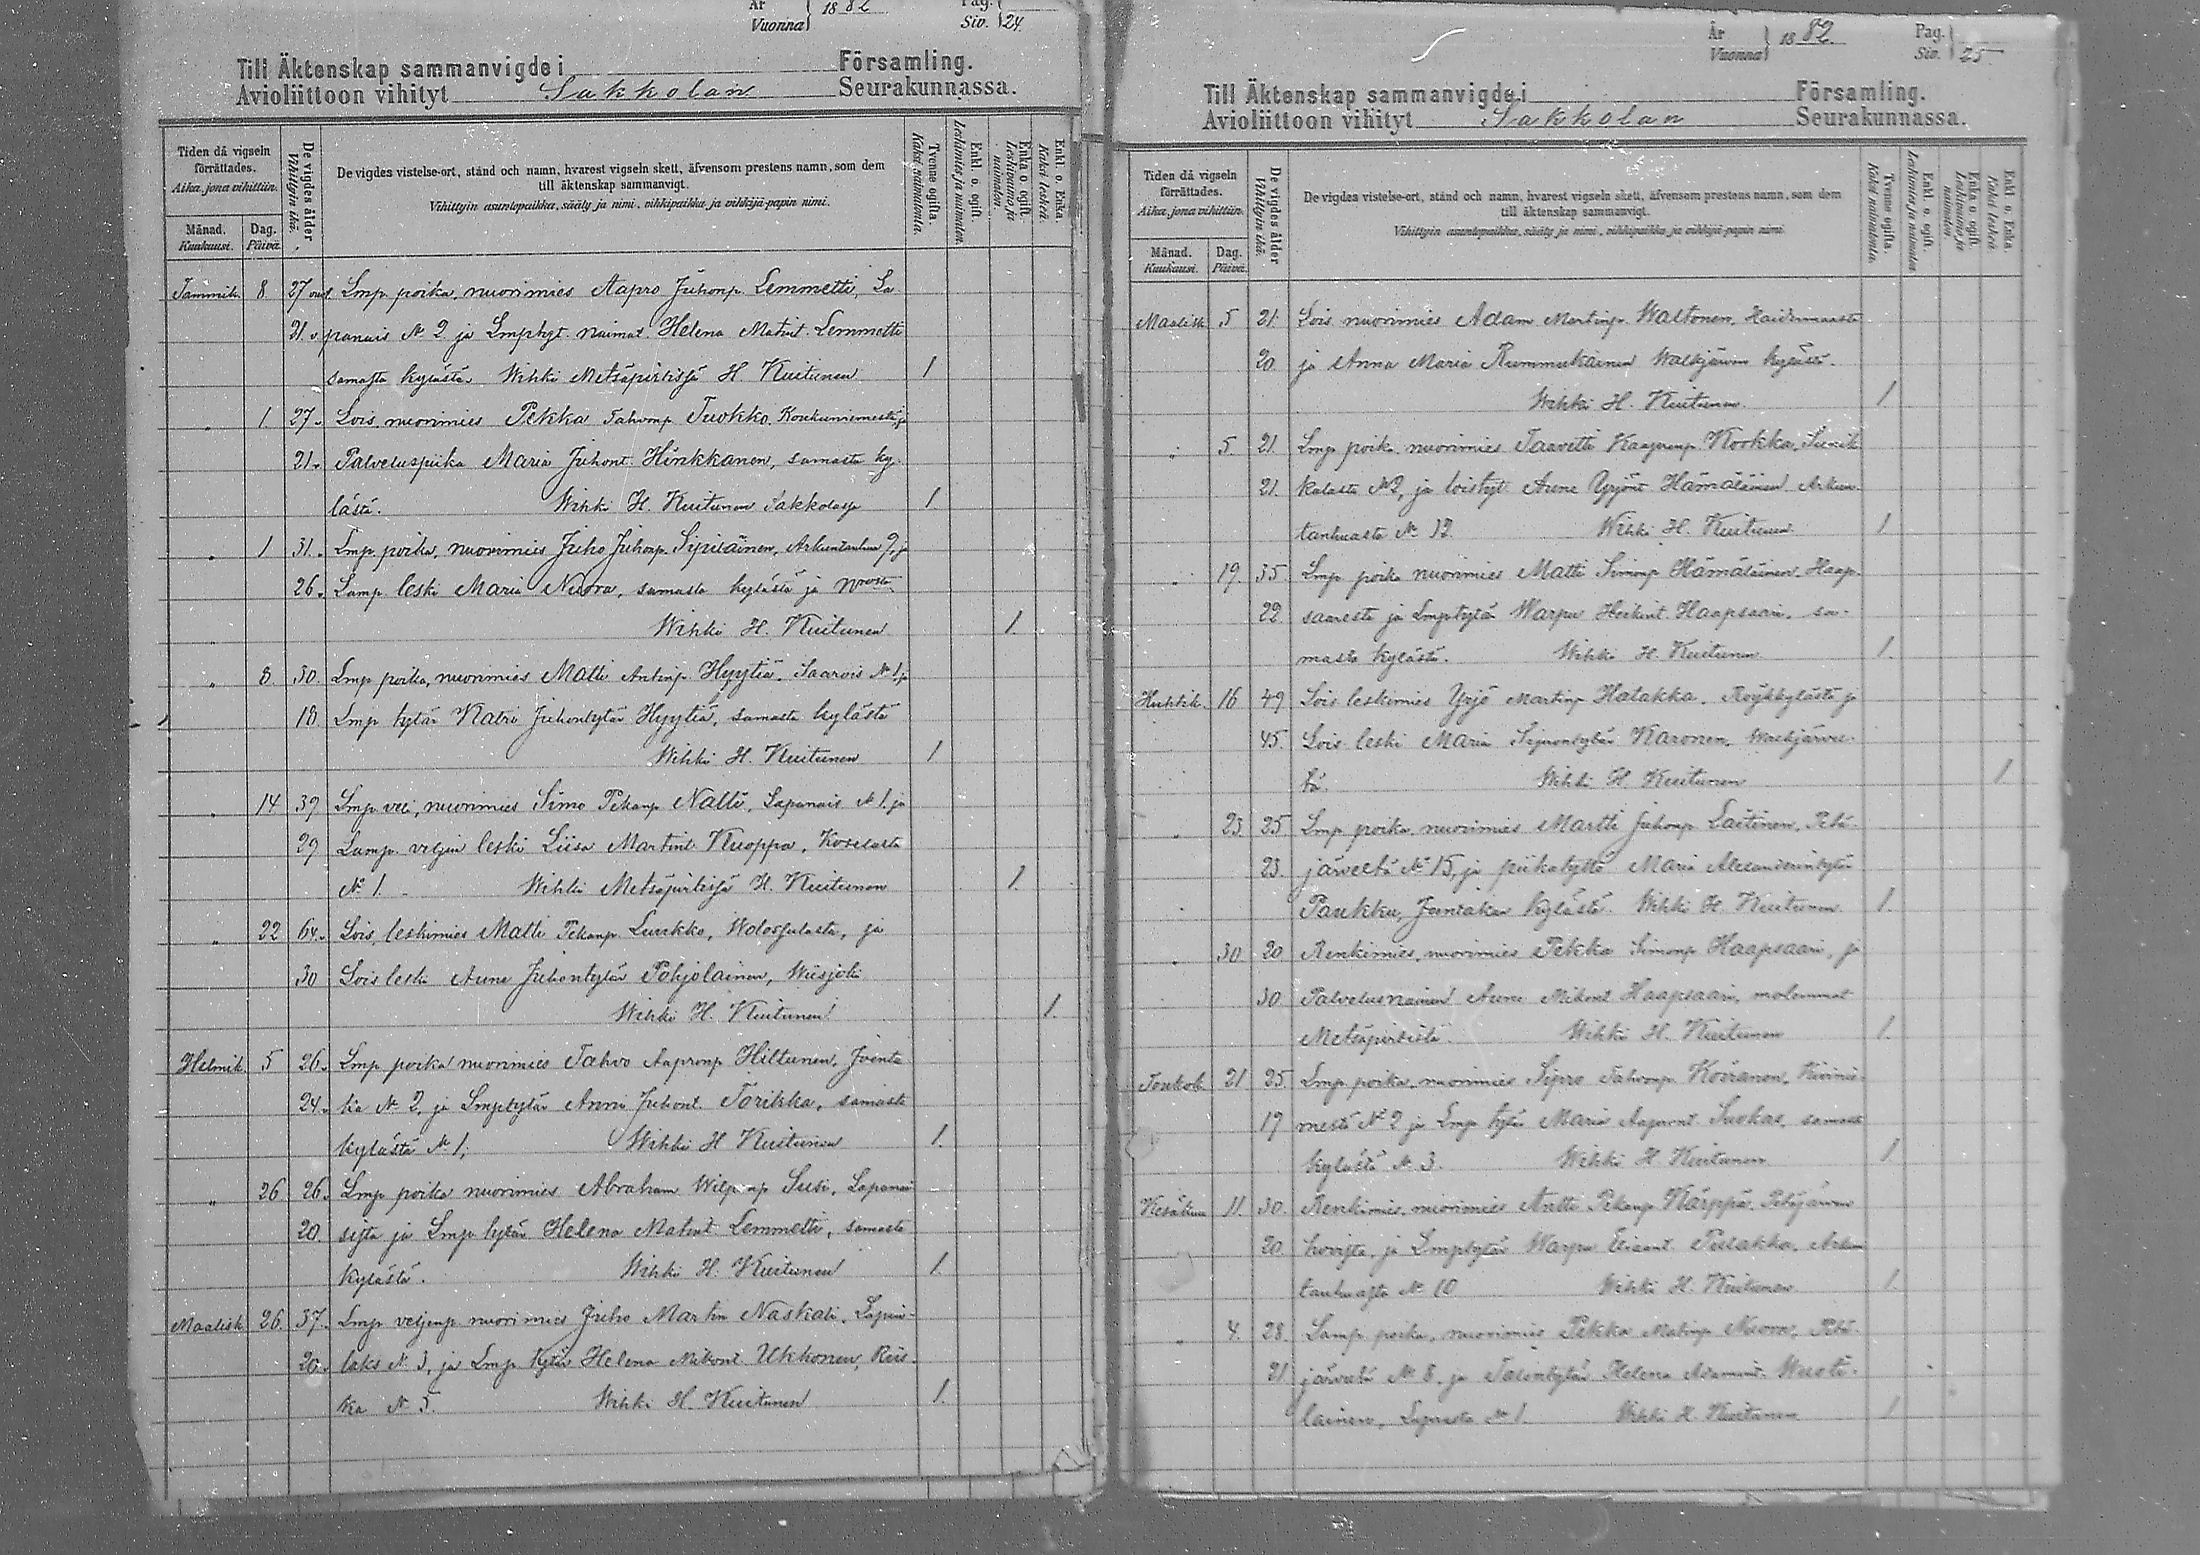 År
Vuonna } 1882
Pag.
Siv. } 24
Till Äktenskap sammanvigde i Församling.
Avioliittoon vihityt Sakkolan Seurakunnassa.
Tiden då vigseln förrättades.
Aika, jona vihittiin.
Månad. Kuukausi.
Dag. Päivä.
De vigdes ålder
Vihittyin ikä.
De vigdes vistelse-ort, stånd och namn, hvarest vigseln skett, äfvensom prestens namn, som dem
till äktenskap sammanvigt.
Vihittyin asuntopaikka, sääty ja nimi, vihkipaikka ja vihkijä-papin nimi.
Tvenne ogifta.
Kaksi naimatonta.
Enkl. o. ogift.
Leskimies ja naimaton.
Enka o. ogift.
Leskivaimo ja naimaton.
Enkl. o. Enka.
Kaksi leskeä.
Tammik. 8 27 Lmp. poika, nuorimies Aapro Juhonp. Lemmetti, La
21 panais № 2 ja Lmptyt. naimat. Helena Matint. Lemmetti
samasta kylästä. Wihki Metsäpirtissä H. Kuitunen 1
" 1 27. Lois. nuorimies Pekka Tahvonp Tuokko, Konkuniemestä, ja
21. Palveluspiika Maria Juhont. Hinkkanen, samasta ky-
lästä. Wihki H. Kuitunen Sakkolassa 1
" 1 31. Lmp. poika, nuorimies Juho Juhonp. Sipiläinen, Arkuntanhua 9, ja
26. Lamp. leski Maria Nuora, samasta kylästä ja
Wihki H. Kuitunen 1.
" 8. 30. Lmp poika, nuorimies Matti Antinp Hyytiä, Saarois № 1, ja
18. Lmp tytär Katri Juhontytär Hyytiä, samasta kylästä
Wihki H. Kuitunen 1
" 14 39 Lmp veli, nuorimies Simo Pekanp Natti, Lapanais № 1. ja
29 Lamp. veljen leski Liisa Martint Kuoppa, Koselasta
№ 1. Wihki Metsäpirtissä H. Kuitunen 1.
" 22 64. Lois, leskimies Matti Pekanp Luukko, Wolossulasta, ja
30 Lois leski Anna Juhontytär Pohjolainen, Wiisjoki
Wihki H. Kuitunen 1.
Helmik. 5 26. Lmp poika nuorimies Tahvo Aapronp Hiltunen, Joenta
24. ka № 2, ja Lmptytär Anni Juhont. Torikka, samasta
kylästä № 1; Wihki H Kuitunen 1.
" 26 26. Lmp poika nuorimies Abraham Wilp.np Susi, Lapanai
20. sista ja Lmp tytär Helena Matint Lemmetti, samasta
kylästä. Wihki H. Kuitunen 1.
Maalisk. 26. 37. Lmp veljenp nuorimies Juho Martin Naskali, Lapin-
20. laks № 3, ja Lmp tytär Helena Mikont Ukkonen, Riis-
ka № 5. Wihki H. Kuitunen 1.
År
Vuonna } 1882.
Pag.
Siv. } 25
Till Äktenskap sammanvigde i Församling.
Avioliittoon vihityt Sakkolan Seurakunnassa.
Tiden då vigseln förrättades.
Aika, jona vihittiin.
Månad. Kuukausi.
Dag. Päivä.
De vigdes ålder
Vihittyin ikä.
De vigdes vistelse-ort, stånd och namn, hvarest vigseln skett, äfvensom prestens namn, som dem
till äktenskap sammanvigt.
Vihittyin asuntopaikka, sääty ja nimi, vihkipaikka ja vihkijä-papin nimi.
Tvenne ogifta.
Kaksi naimatonta.
Enkl. o. ogift.
Leskimies ja naimaton.
Enka o. ogift.
Leskivaimo ja naimaton.
Enkl. o. Enka.
Kaksi leskeä.
Maalisk 5 21. Lois nuorimies Adam Martinp. Waltonen, Haitermaasta
20. ja Anna Maria Rummukainen Walkjärven kylästä.
Wihki H. Kuitunen 1
" 5. 21. Lmp poika nuorimies Taavetti Kaapronp. Kookka,
21. kalasta № 2, ja loistyt Anna Yrjönt Hämäläinen Arkun
tanhuasta № 12 Wihki H. Kuitunen 1
" 19. 35 Lmp poika nuorimies Matti Simonp Hämäläinen, Haap-
22 saaresta ja Lmptytär Warpu Heikint. Haapsaari, sa-
masta kylästä. Wihki H. Kuitunen 1.
Huhtik. 16 49 Lois leskimies Yrjö Martinp Halakka, Röykkylästä ja
45. Lois leski Maria Simontytär Karonen, Walkjärvel-
tä. Wihki H. Kuitunen 1
" 23 25 Lmp poika, nuorimies Martti Juhonp Laitinen, Petä-
23. järveltä № 15, ja piikatyttö Maria Alexanterintytär
Paukku, Joentakan kylästä. Wihki H. Kuitunen 1.
" 30 20 Renkimies, nuorimies Pekka Simonp Haapsaari, ja
30 Palvelusnainen Anna Mikont Haapsaari, molemmat
Metsäpirtistä. Wihki H. Kuitunen 1.
Toukok 21 25. Lmp poika, nuorimies Sipro Tahvonp Koiranen, Kivinie-
17 mestä № 2 ja Lmp tytär Maria Aapront Suokas, samasta
kylästä № 3. Wihki H Kuitunen 1
Kesäkuu 11. 30. Renkimies, nuorimies Antti Pekanp Kärppä, Petäjärven
20. hovista, ja Lmptytär Warpu Eliaant Pulakka, Arkun
tanhuasta № 10 Wihki H. Kuitunen 1.
" 4. 28. Lamp. poika, nuorimies Pekka Matinp Nuora, Petä-
21. järveltä № 8, ja Talontytär Helena Adamint. Wuoti-
lainen, № 1. Wihki H. Kuitunen 1